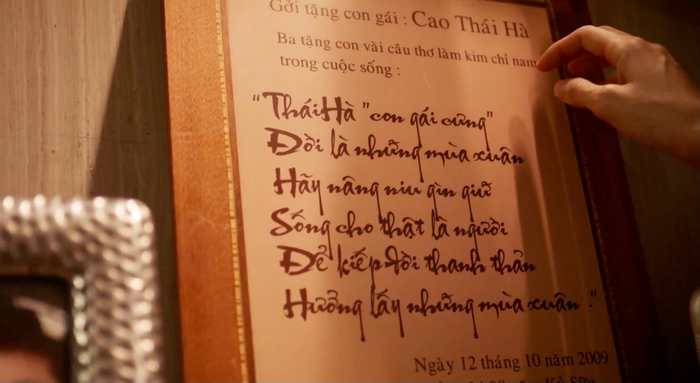 Gởi tặng con gái : Cao Thái Hà
Ba tặng con vài câu thơ làm kim chỉ nam
trong cuộc sống :
“Thái Hà "con gái cưng"
Đời là những mùa xuân
Hãy nâng niu gìn giữ
Sống cho thật là người
Để kiếp đời thanh thản
Hưởng lấy những mùa xuân ."
Ngày 12 tháng 10 năm 2009